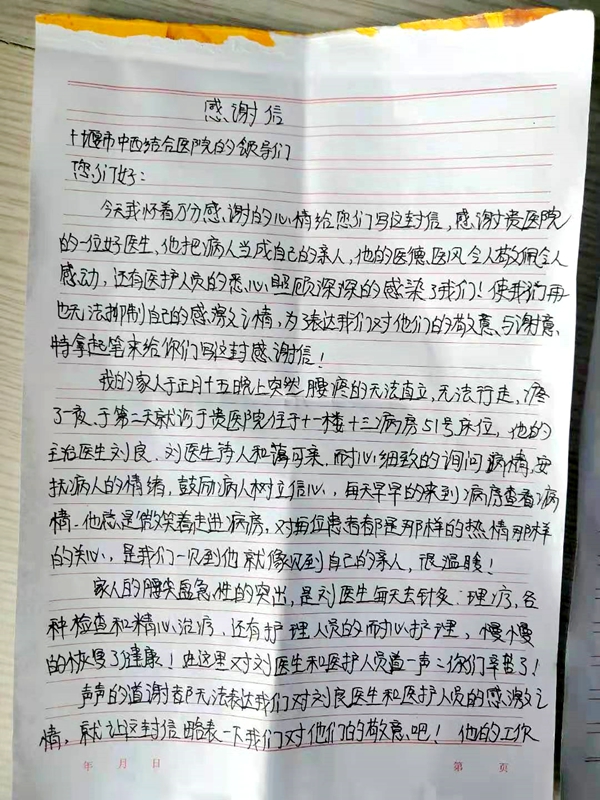 感谢信
十堰市中西结合医院的领导们
您们好:
今天我怀着万分感谢的心情给您们写这封信,感谢贵医院
的一位好医生,他把病人当成自己的亲人,他的医德、医风令人敬佩令人
感动,还有医护人员的悉心照顾深深的感染了我们!使我们再
也无法抑制自己的感激之情,为了表达我们对他们的敬意、与谢意、
特拿起笔来给你们写这封感谢信!
我的家人于正月十五晚上突然腰疼的无法直立,无法行走,疼
了一夜、于第二天就诊于贵医院住于十一楼十三病房51号床位,他的
主治医生刘良、刘医生待人和蔼可亲,耐心细致的询问病情,安
抚病人的情绪,鼓励病人树立信心,每天早早的来到病房查看病
情、他总是微笑着走进病房,对每位患者都是那样的热情那样
的关心,是我们一见到他就像见到自己的亲人,很温暖!
家人的腰尖盘急性的突出,是刘医生每天去针灸、理疗,各
种检查和精心治疗、还有护理人员的耐心护理,慢慢
的恢复了健康!由这里对刘医生和医护人员道一声:你们辛苦了!
声声的道谢都无法表达我们对刘良医生和医护人员的感激之
情,就让这封信略表一下我们对他们的敬意吧!他的工作
年 月 日 第 页